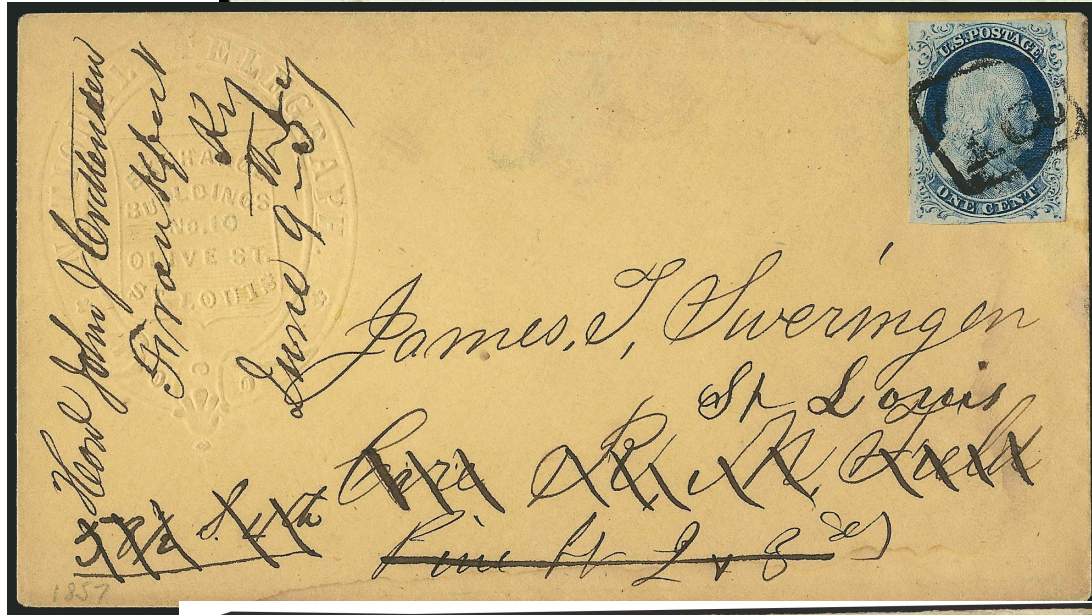 U.S. POSTAGE
ONE CENT
NATIONAL TELEGRAPH
BUILDINGS
No. 10
OLIVE ST.
ST LOUIS
Hond John J Crittenden
Frankfort
Ky
June 9th 57
James, T, Sweringen
St Louis
Care R. N. Field
Pine St 2 & 3
1857